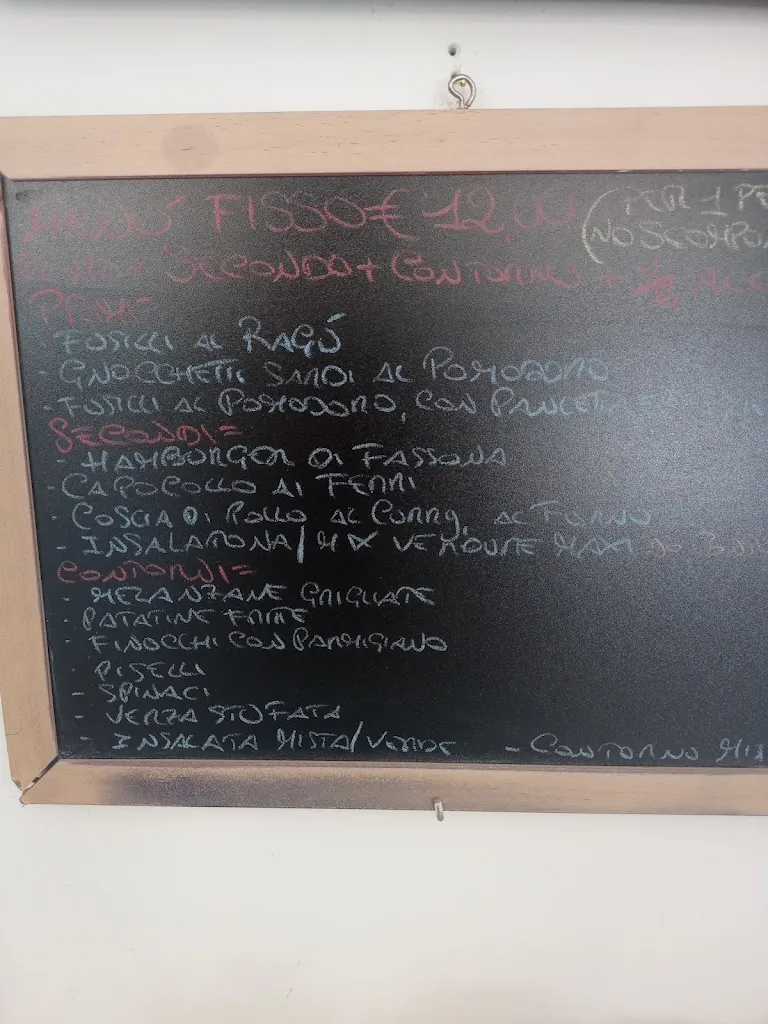 MENÚ FISSO € 12,00 (PER 1 PE
(NO SCOMPON
SECONDO + CONTORNO + 1/2
PRIMI=
- FUSILLI AL RAGÚ
- GNOCCHETTI SARDI AL POMODORO
- FUSILLI AL POMODORO, CON PANCETTA E
SECONDI=
- HAMBURGER DI FASSONA
- CAPOCOLLO AI FERRI
- COSCIA DI POLLO AL CURRY, AL FORNO
- INSALATONA/MIX VERDURE MAXI
CONTORNI=
- MELANZANE GRIGLIATE
- PATATINE FRITTE
- FINOCCHI CON PARMIGIANO
- PISELLI
- SPINACI
- VERZA STUFATA
- INSALATA MISTA/VERDE - CONTORNO MIX